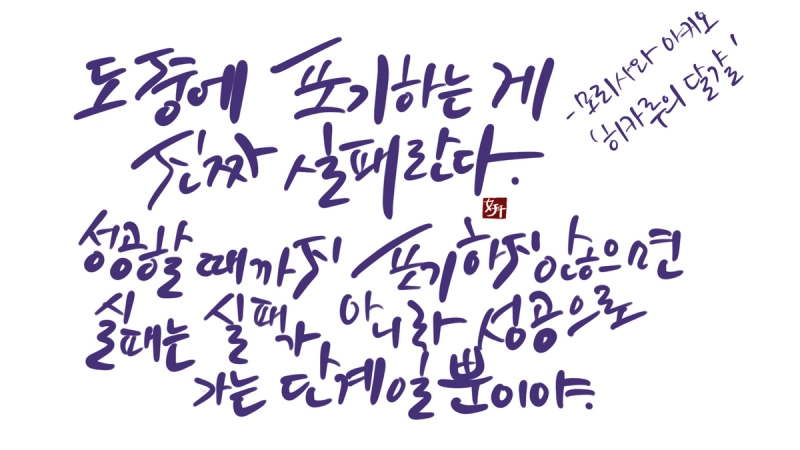 도중에 포기하는 게
진짜 실패란다.
성공할 때까지 포기하지 않으면
실패는 실패가 아니라 성공으로
가는 단계일 뿐이야.
-모리사와 아키오
'히카루의 달걀'